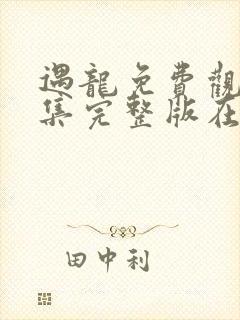 遇龍免費觀
集完整版在
田中利